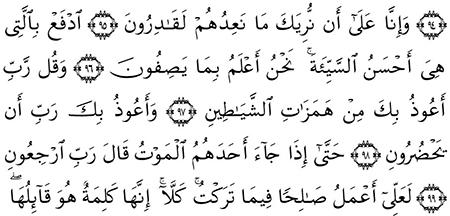 ﴿٩٤﴾ وَإِنَّا عَلَىٰٓ أَن نُّرِيَكَ مَا نَعِدُهُمْ لَقَـٰدِرُونَ ﴿٩٥﴾ ٱدْفَعْ بِٱلَّتِى
هِىَ أَحْسَنُ ٱلسَّيِّئَةَ ۚ نَحْنُ أَعْلَمُ بِمَا يَصِفُونَ ﴿٩٦﴾ وَقُل رَّبِّ
أَعُوذُ بِكَ مِنْ هَمَزَٰتِ ٱلشَّيَـٰطِينِ ﴿٩٧﴾ وَأَعُوذُ بِكَ رَبِّ أَن
يَحْضُرُونِ ﴿٩٨﴾ حَتَّىٰٓ إِذَا جَآءَ أَحَدَهُمُ ٱلْمَوْتُ قَالَ رَبِّ ٱرْجِعُونِ
﴿٩٩﴾ لَعَلِّىٓ أَعْمَلُ صَـٰلِحًا فِيمَا تَرَكْتُ ۚ كَلَّآ ۚ إِنَّهَا كَلِمَةٌ هُوَ قَآئِلُهَا ۖ